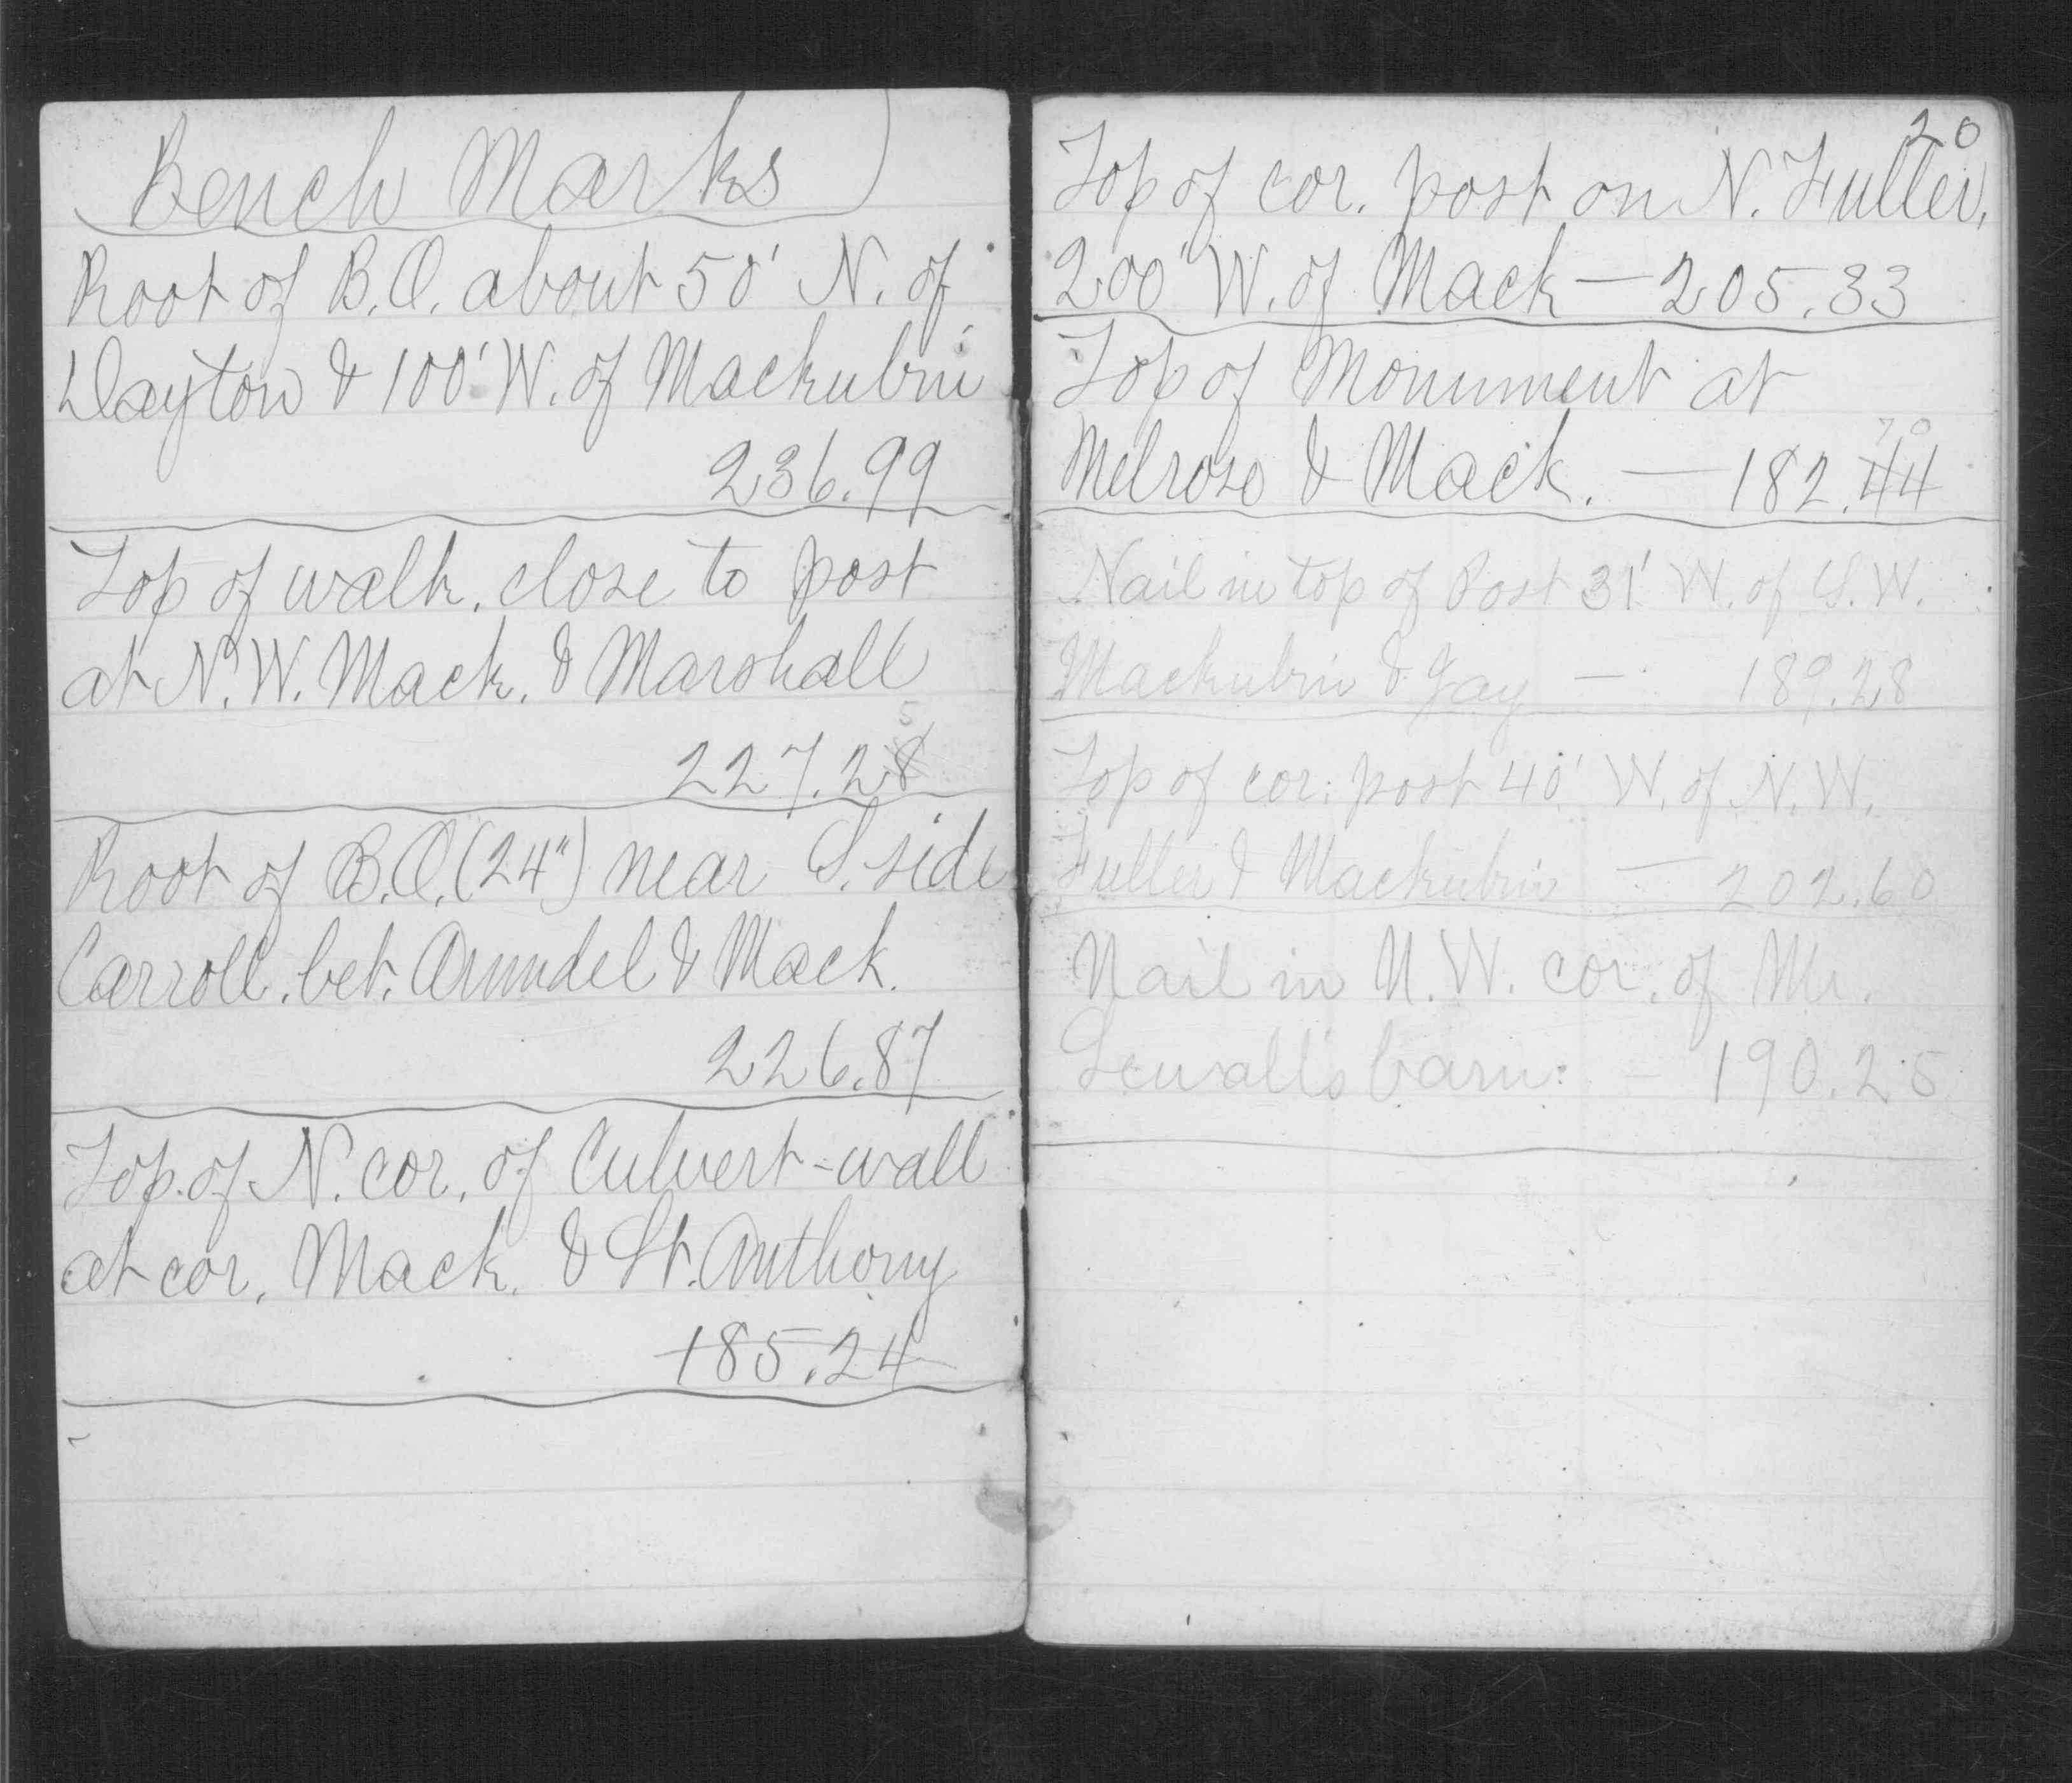 Bench Marks
Root of B.O. about 50' N. of
Dayton & 100' W. of Mackubin
236.99
Top of walk, close to post
at N.W. Mack. & Marshall
5
227.28
Root of B.O. (24") near S. side
Carroll, bet. Arundel & Mack.
226.87
Top of N. cor. of Culvert-wall
at cor. Mack. & St. Anthony
185.24
20
Top of cor. post on N. Fuller,
200' W. of Mack — 205.33
Top of Monument at
70
Melrose & Mack. — 182.44
Nail in top of Post 31' W. of S.W.
Mackubin & Gay — 189.28
Top of cor. post 40' W. of N.W.
Fuller & Mackubin — 202.60
Nail in N.W. cor. of Mr.
Sewall's barn: — 190.25